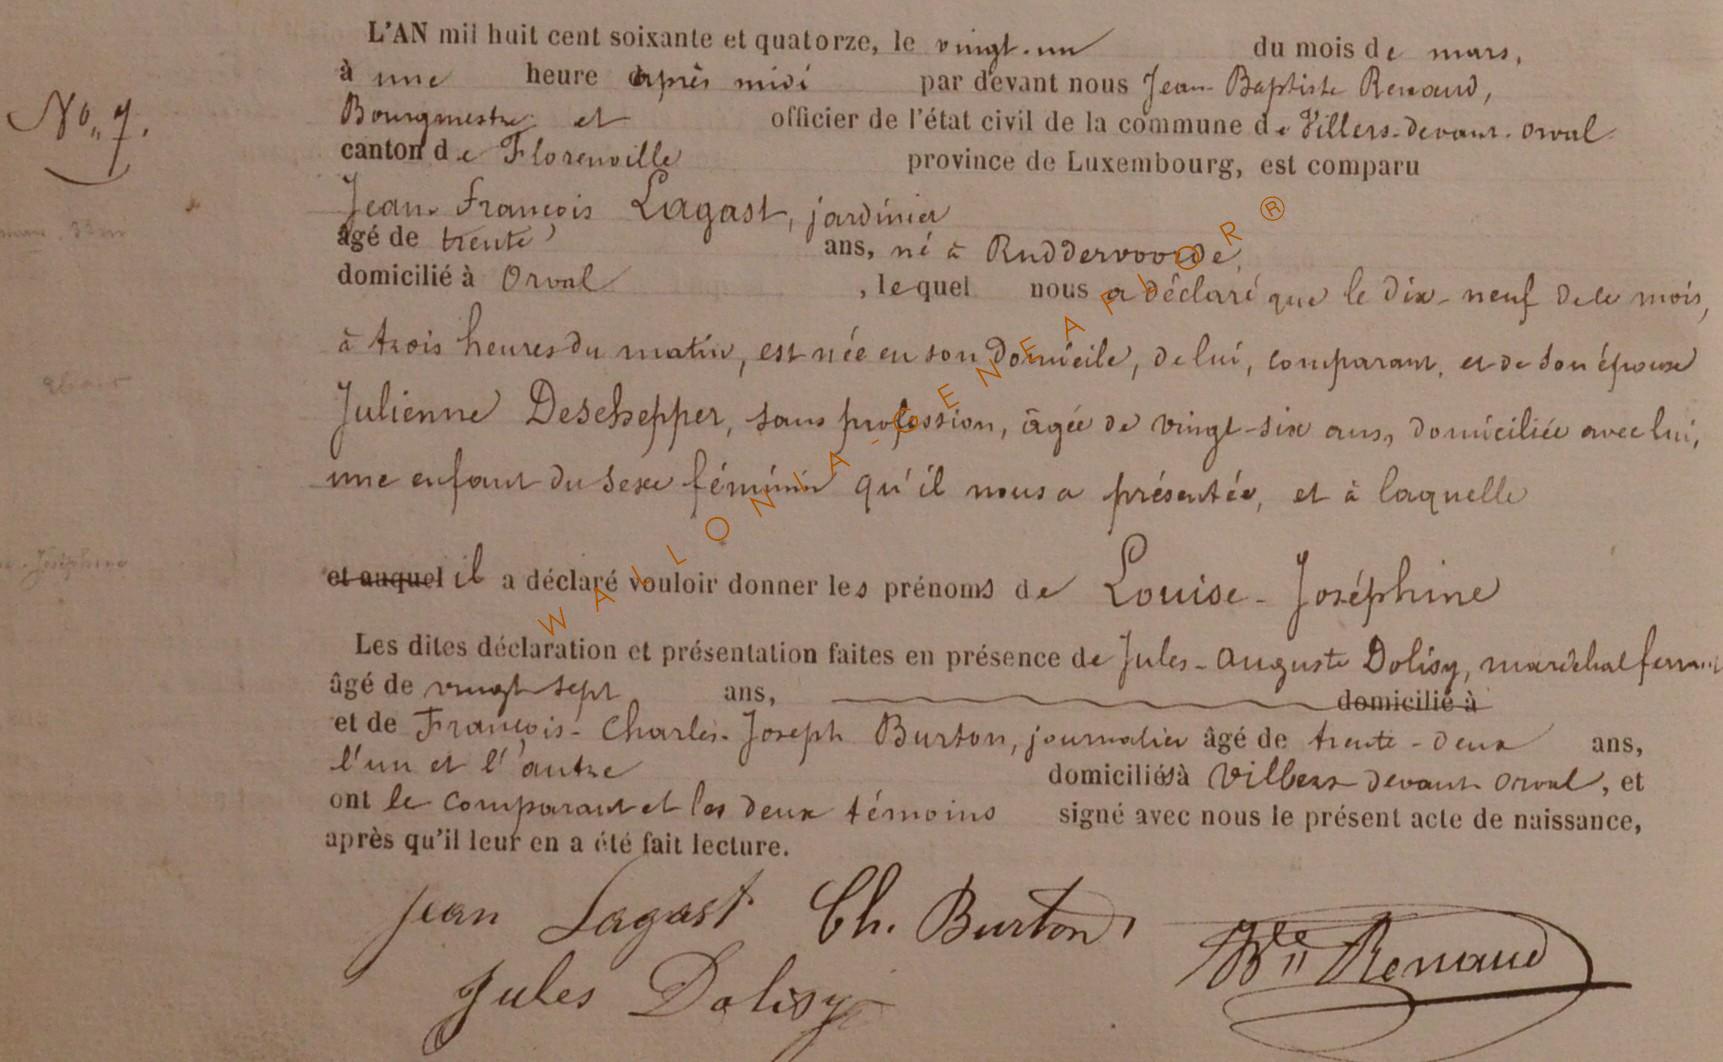 L'AN mil huit cent soixante et quatorze, le vingt-un du mois de mars,
à une heure après midi par devant nous Jean-Baptiste Renaud,
No. 7.
Bourgmestre et officier de l'état civil de la commune de Villers-devant-Orval
canton de Florenville province de Luxembourg, est comparu
Jean-François Lagast, jardinier
âgé de trente ans, né à Ruddervoorde,
domicilié à Orval, lequel nous a déclaré que le dix-neuf de ce mois,
à trois heures du matin, est née en son domicile, de lui, comparant, et de son épouse
Julienne Deschepper, sans profession, âgée de vingt-six ans, domiciliée avec lui,
une enfant du sexe féminin qu'il nous a présentée, et à laquelle
Joséphine
et auquel il a déclaré vouloir donner les prénoms de Louise-Joséphine
Les dites déclaration et présentation faites en présence de Jules-Auguste Dolisy, maréchal ferrant
âgé de vingt sept ans, domicilié à
et de François-Charles-Joseph Burton, journalier âgé de trente-deux ans,
l'un et l'autre domiciliés à Villers devant Orval, et
ont le comparant et les deux témoins signé avec nous le présent acte de naissance,
après qu'il leur en a été fait lecture.
Jean Lagast Ch. Burton,
Bte Renaud
Jules Dolisy
WALLONIA-GENEAFLOR®